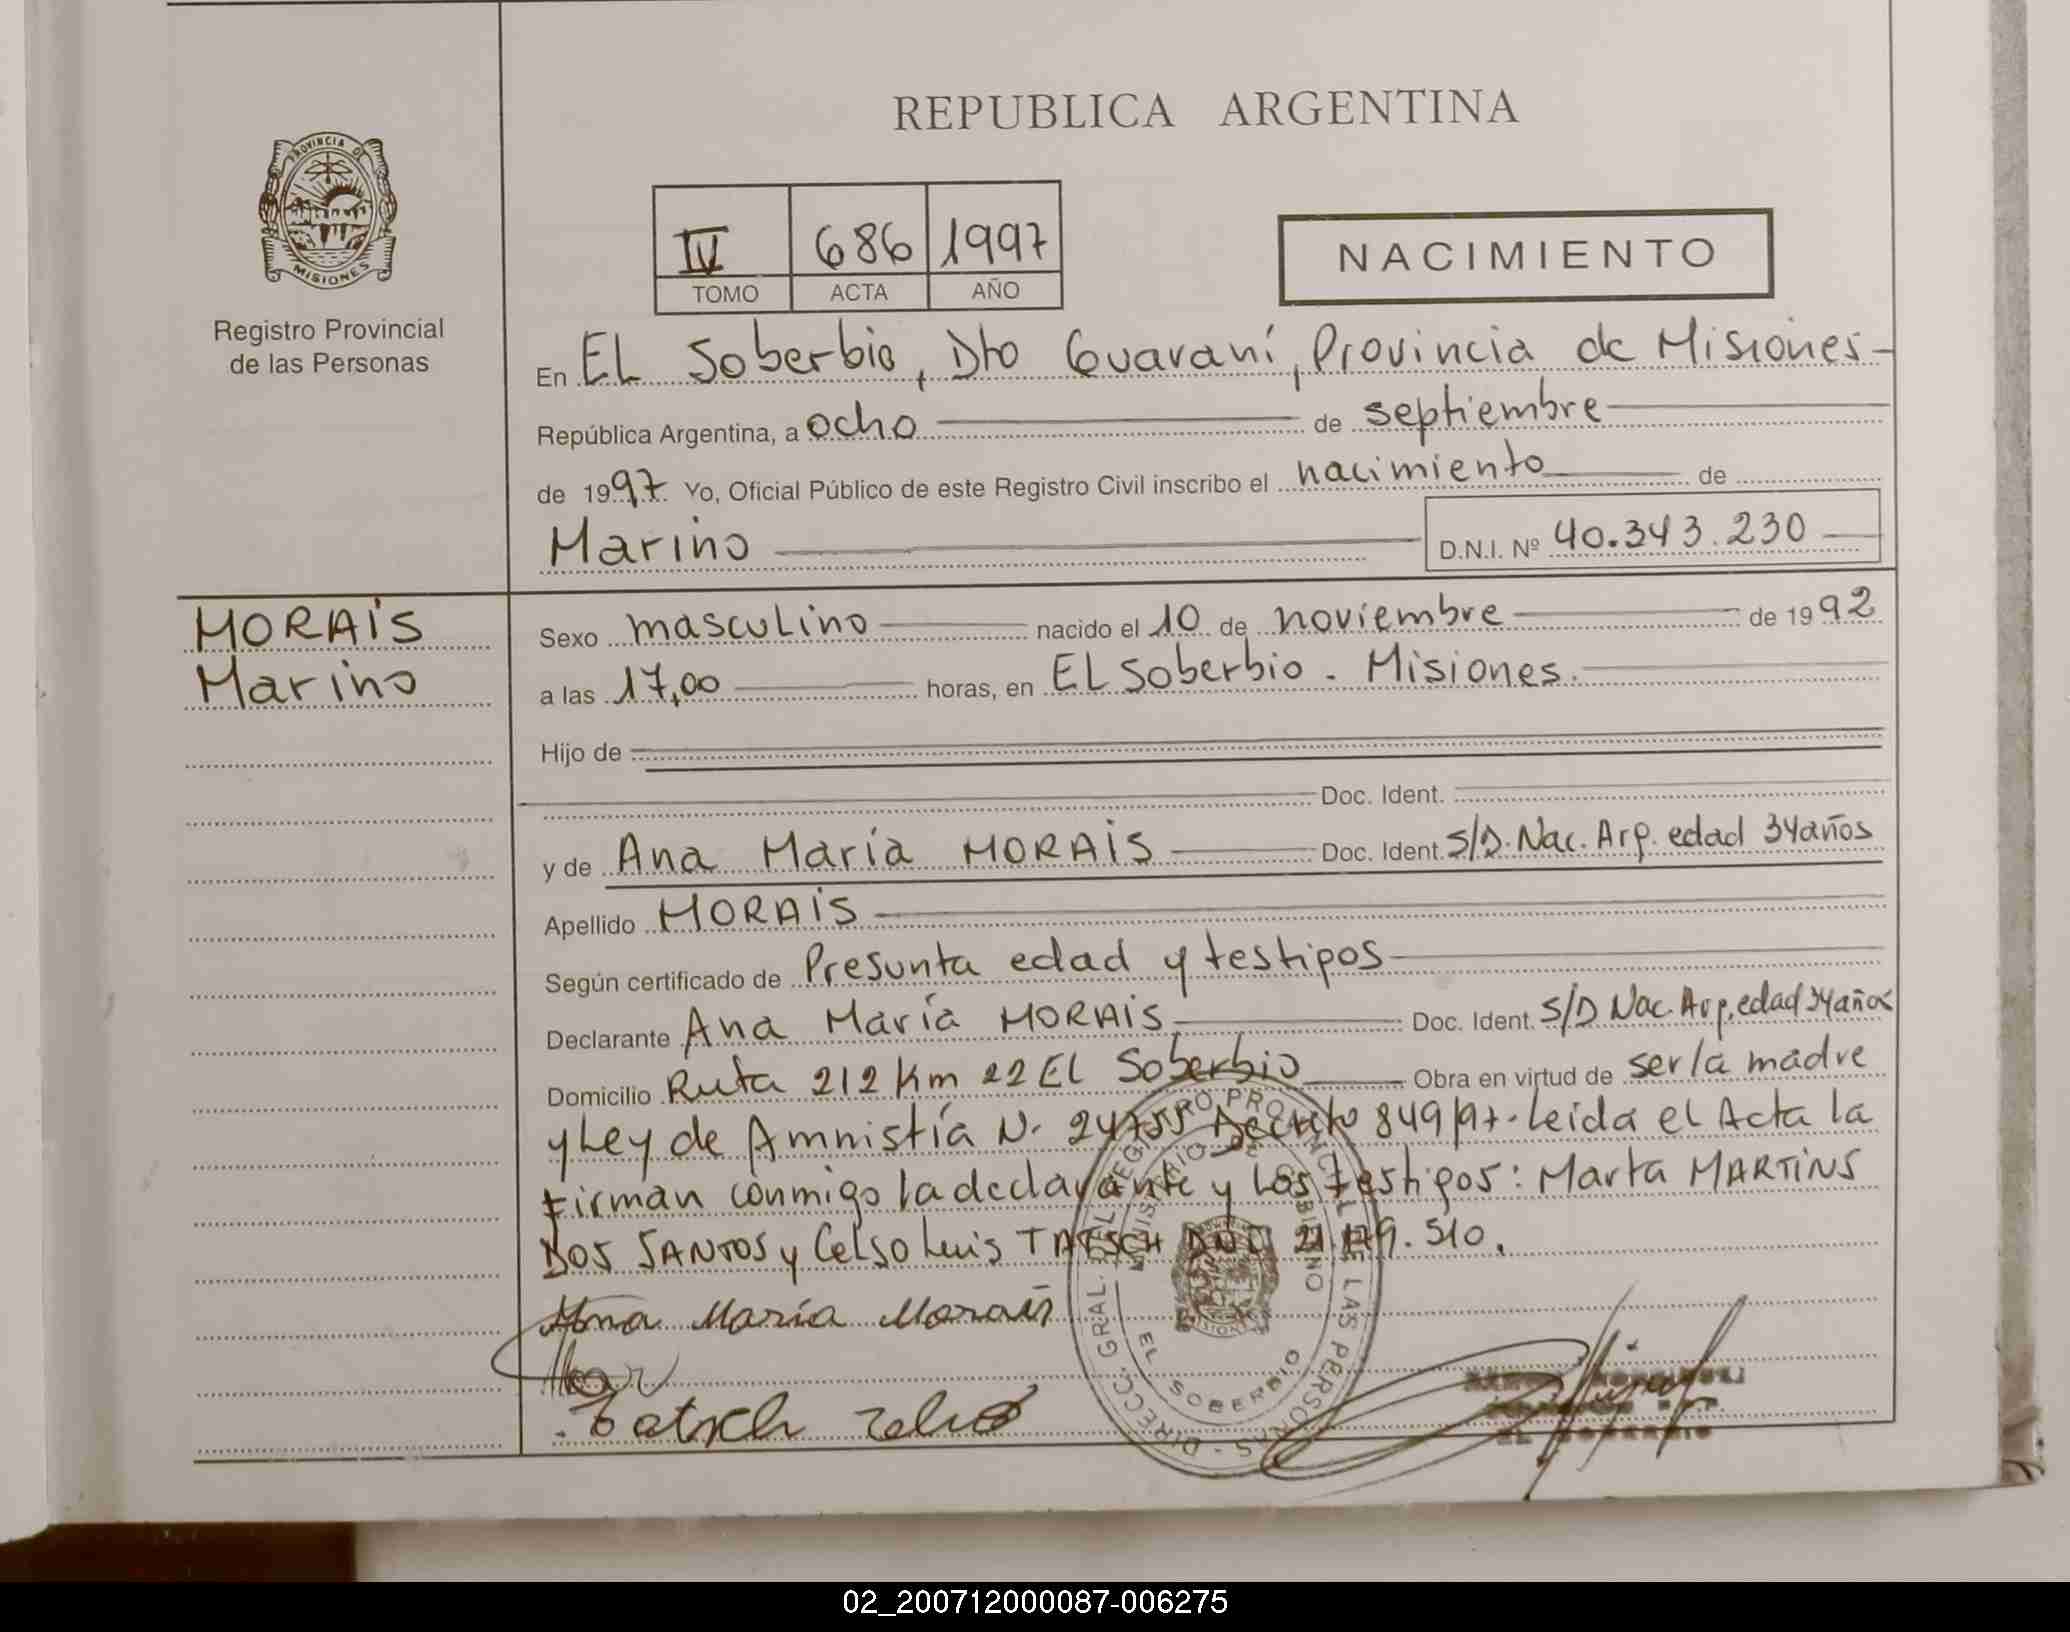 REPUBLICA ARGENTINA
PROVINCIA DE
MISIONES
Registro Provincial
de las Personas
IV 686 1997
TOMO ACTA AÑO
NACIMIENTO
En EL Soberbio, Dto Guaraní, Provincia de Misiones
República Argentina, a ocho de septiembre
de 1997 Yo, Oficial Público de este Registro Civil inscribo el nacimiento de
Marino D.N.I. Nº 40.343.230
MORAiS
Marino
Sexo masculino nacido el 10 de noviembre de 1992
a las 17,00 horas, en EL Soberbio - Misiones.
Hijo de
Doc. Ident.
y de Ana María MORAiS Doc. Ident. S/D. Nac. Arg. edad 34 años
Apellido MORAiS
Según certificado de Presunta edad y testigos
Declarante Ana María MORAiS Doc. Ident. S/D Nac. Arg. edad 34 años
Domicilio Ruta 212 Km 22 EL Soberbio Obra en virtud de ser la madre
y Ley de Amnistía N. 24755 Decreto 849/97. Leida el Acta la
firman conmigo la declarante y los testigos: Marta MARTiNS
DOS SANTOS y Celso Luis TATSCH DNI 21.179.510.
Ana María Morais
Tatsch Celso
DIRECC. GRAL. DEL REGISTRO PROVINCIAL DE LAS PERSONAS
MINISTERIO DE GOBIERNO
EL SOBERBIO
EL SOBERBIO
02_200712000087-006275